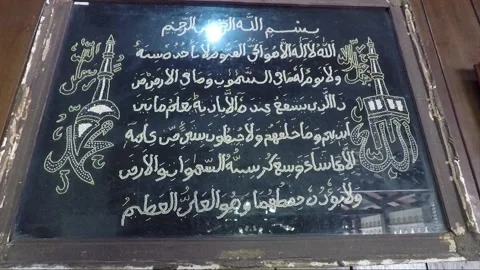 بسم الله الرحمن الرحيم
الله لا اله الا هو الحي القيوم لا تأخذه سنة
ولا نوم له ما في السموت وما في الأرض من
ذا الذي يشفع عنده الا باذنه يعلم ما بين
ايديهم وما خلفهم ولا يحيطون بشئ من علمه
الا بما شاء وسع كرسيه السموات والأرض
ولا يؤده حفظهما وهو العلي العظيم
الله
محمد